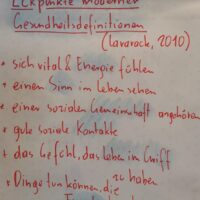 Eckpunkte moderner
Gesundheitsdefinitionen
(Laverack, 2010)
• sich vital & Energie fühlen
• einen Sinn im Leben sehen
• einer sozialen Gemeinschaft angehören
• gute soziale Kontakte
• das Gefühl, das Leben im Griff
zu haben
• Dinge tun können, die